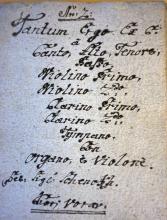 Tantum Ergo Ex C
a
Canto, Alto, Tenore,
Basso,
Violino Primo,
Violino 2do.
Clarino Primo,
Clarino 2do.
Tympano,
Con
Organo, e Violone.